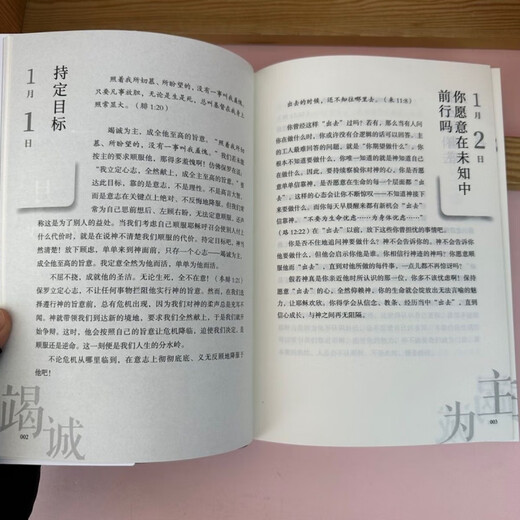 1月1日
持定目标
照着我所切慕、所盼望的，没有一事叫我羞愧，
只要凡事放胆，无论是生是死，总叫基督在我身上
照常显大。（腓 1:20）
竭诚为主，成全他至高的旨意。
所盼望的，没有一事叫我羞愧。”
按主的要求顺服他，那得多羞愧啊！仿佛保罗说：
“我立定心志，全然献上，成全他至高的旨意。”要
达此目标，靠的是意志，不是理性，不是高言大智，
而是意志在关键点上绝对、不反悔地降服。但我们常
常为自己思前想后，左顾右盼，无论定意顺服，还自
称这是为了别人的益处。当我们考虑自己顺服耶稣呼召会使别人付上
什么代价时，就是在说神不清楚我们顺服的代价。持定目标吧，神当
然清楚！放下顾虑，单单来到神面前，只存一个心志——竭诚为主，
成全他至高的旨意。我定意全然为他而活，单单为他而活。
不屈不挠，成就他的圣洁。无论生死，全不在意！（参腓 1:21）
保罗立定心志，不让任何事物拦阻他实行神的旨意。然而在我们选
择遵行神的旨意前，总有危机出现，因为我们对神的柔声总是充耳不
闻。神就带领我们到达新的境地，要求我们全然献上，于是我们或开
始争辩。这时，他会按照自己的旨意让危机降临，迫使我们决定，是
顺服还是逆命。这一刻便是我们人生的分水岭。
不论危机从哪里临到，在意志上彻彻底底、义无反顾地降服于
他吧！
竭诚
002
1月2日
你愿意在未知中
前行吗
出去的时候，还不知往哪里去。（来 11:8）
你曾经这样“出去”过吗？若有，那么当有人问
你在做什么时，你或许没有合逻辑的话可以回答。主
的工人最难回答的问题，就是“你期望做什么”。你
根本不知道要做什么，你唯一知道的就是神知道自己
在做什么。因此，要持续察验你对神的心，是否愿
意单单信靠神，是否愿意在生命的每一个层面都“出
去”。这样的心态会让你惊叹不已——不知道神接下
来要做什么。而你每天早晨醒来都有新机会“出去”
信靠神。“不要为生命忧虑……为身体忧虑……”
（路 12:22）在“出去”以前，放下这些你曾担忧的事情吧。
你是否不住地追问神要做什么？神不会告诉你。神不会告诉你
他要做什么，他只会让你认识他是谁。你相信行神迹的神吗？你愿意顺
服他而“出去”，直到对他所做的每件事，一点儿都不再惊讶吗？
假若神真是你亲近他时所认识的那一位，你何等不该忧虑啊！保
持你“出去”的心态，全然仰赖神，你的生命就会绽放出无法言喻的魅
力，让耶稣欢欣。你得学会从信念、教条、经历当中“出去”，直到
信心成长，与神之间再无阻隔。
为主
003